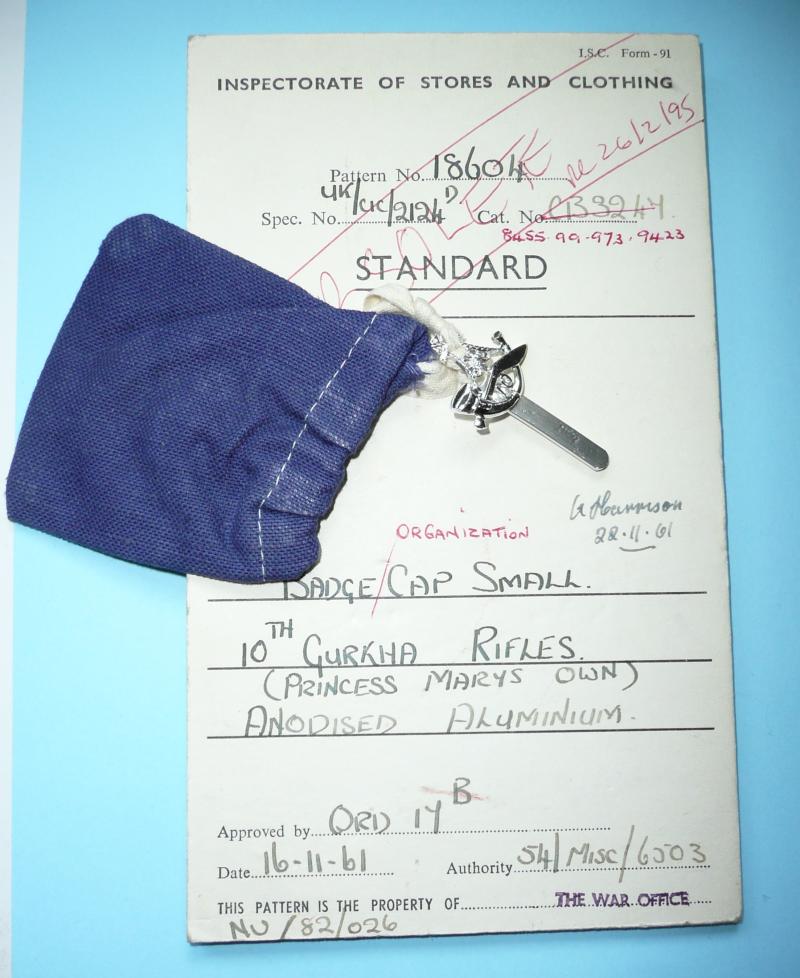 I.S.C. Form - 91
INSPECTORATE OF STORES AND CLOTHING
26/2/95
Pattern No. 18604
Spec. No. UK/UC/2124D Cat. No. CB3244
8455.99-973.9423
OBSOLETE
STANDARD
Harrison
28.11.61
ORGANIZATION
BADGE/CAP SMALL.
10TH GURKHA RIFLES.
(PRINCESS MARYS OWN)
ANODISED ALUMINIUM.
Approved by ORD 17B
Date 16-11-61 Authority 54/MISC/6503
THIS PATTERN IS THE PROPERTY OF THE WAR OFFICE
NU/82/026